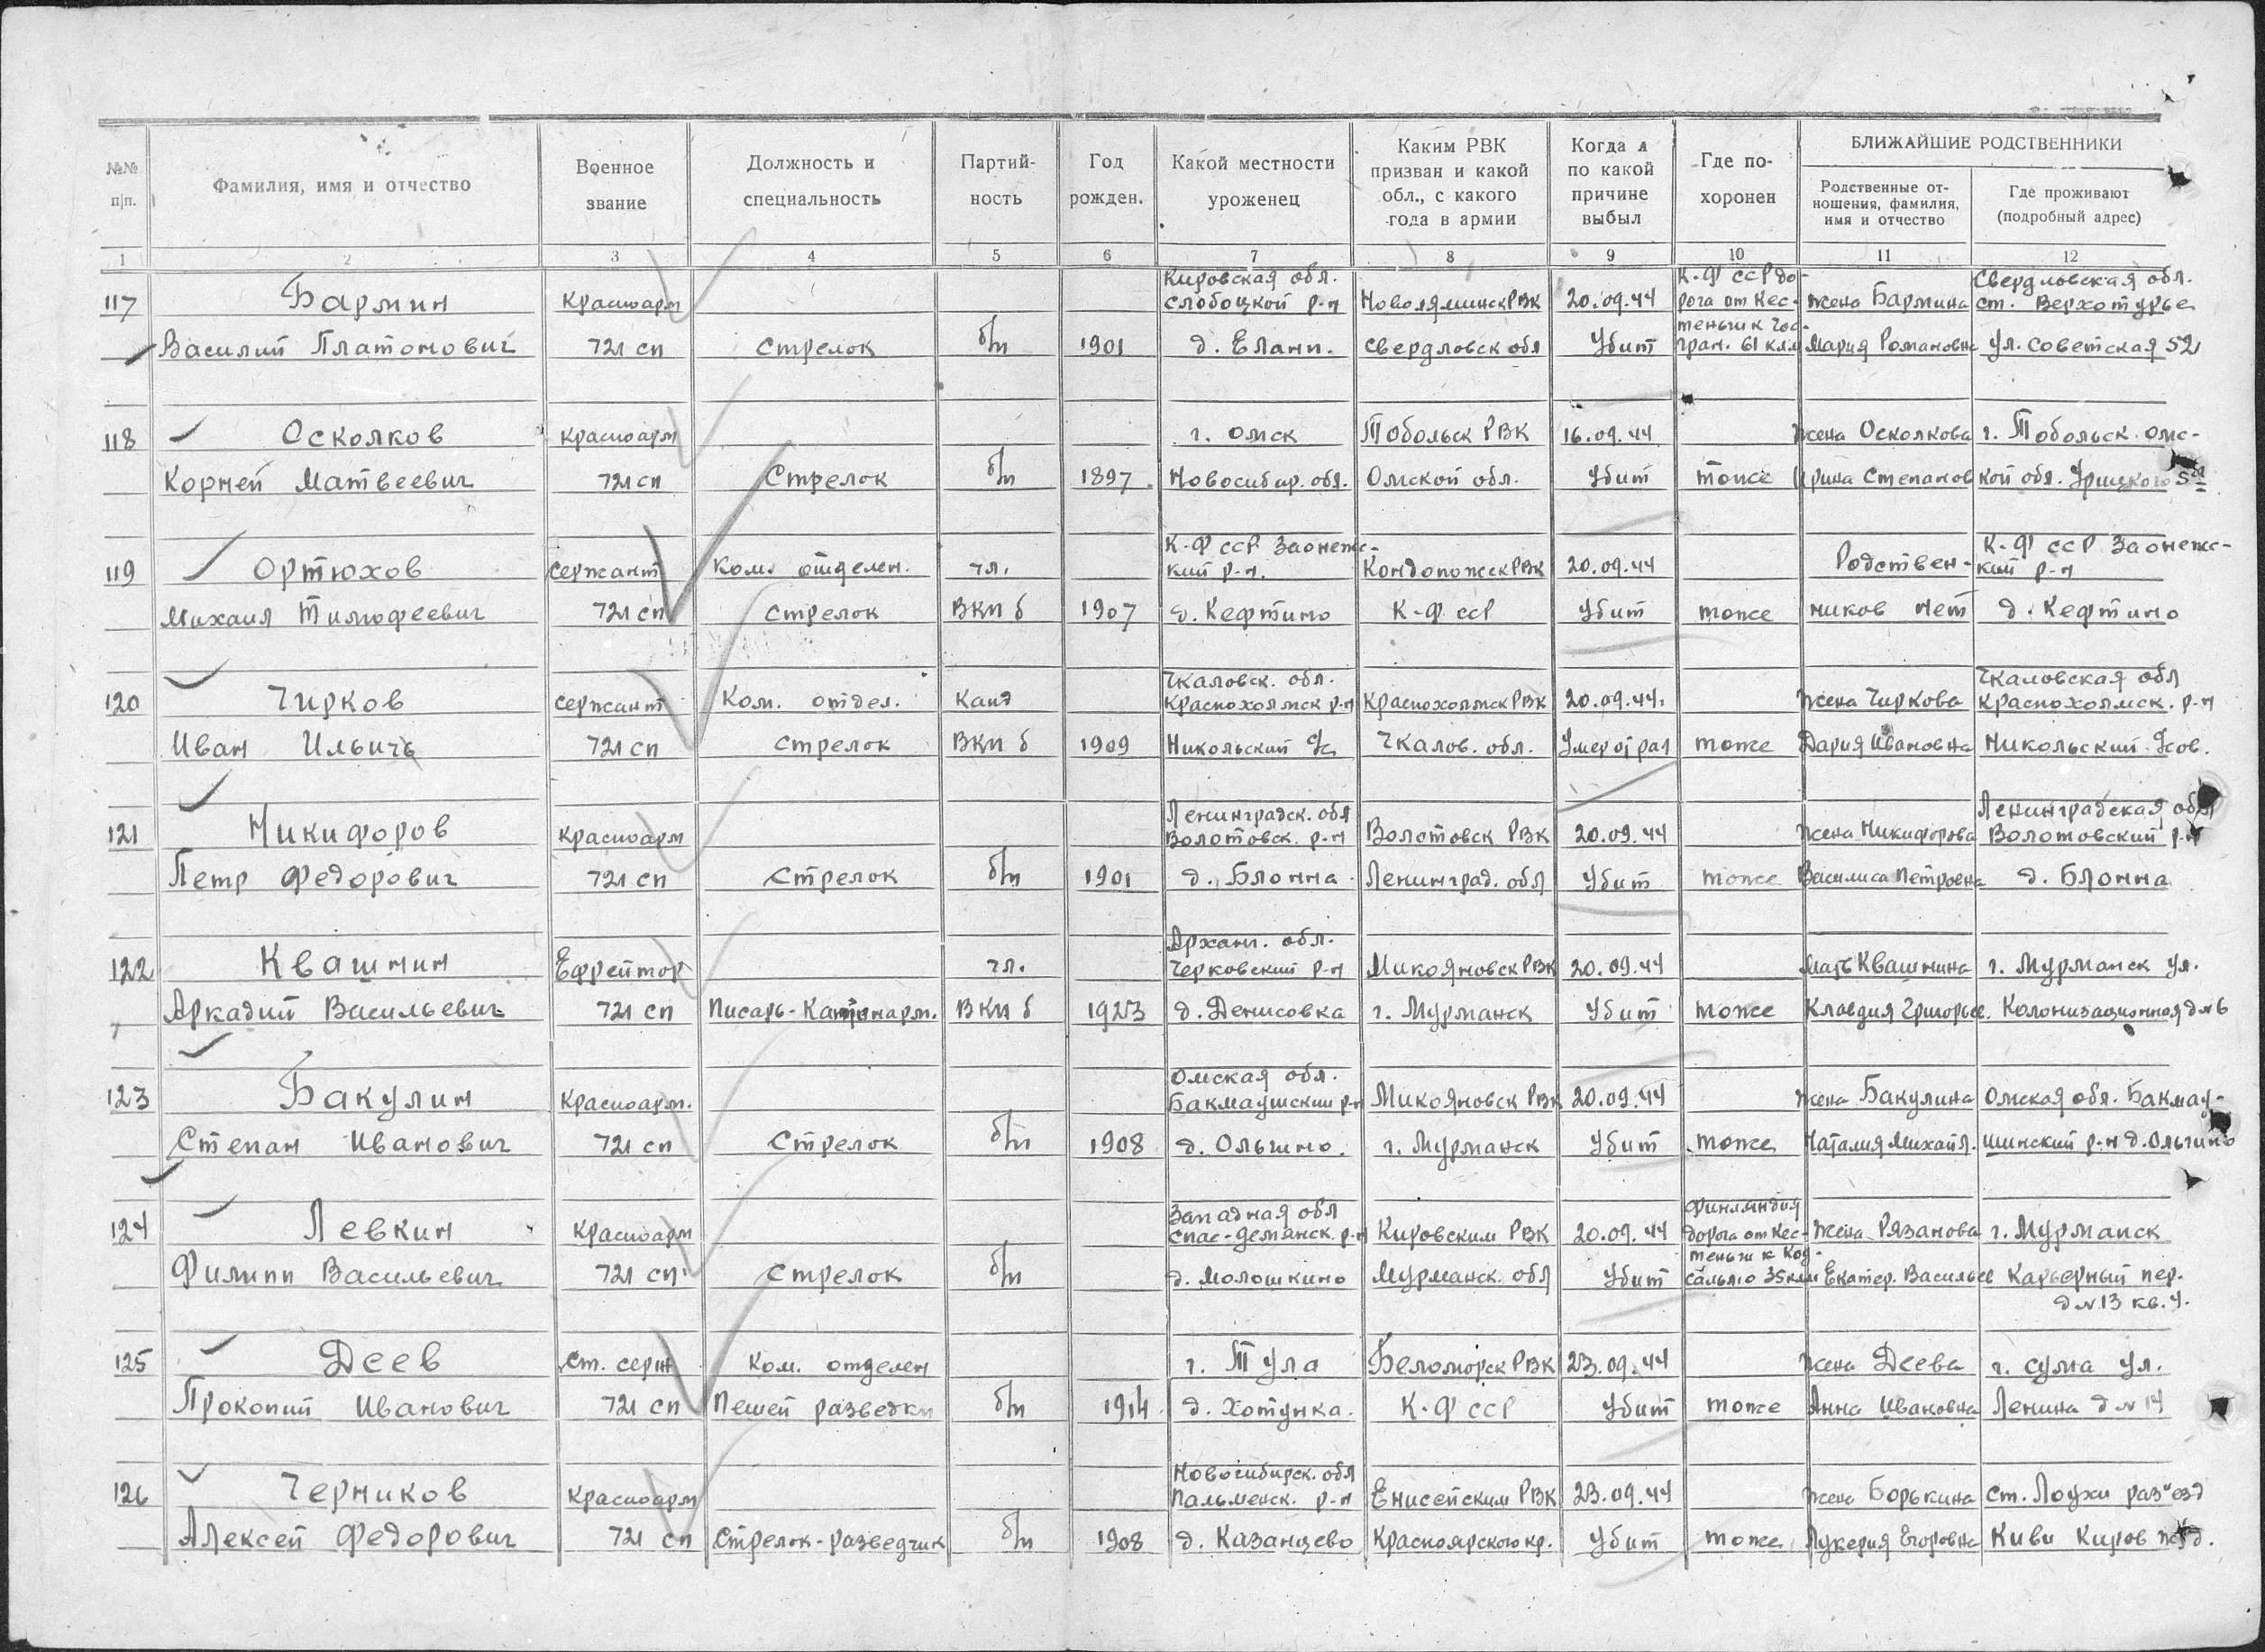 №№ п/п.
Фамилия, имя и отчество
Военное звание
Должность и специальность
Партийность
Год рожден.
Какой местности уроженец
Каким РВК призван и какой обл., с какого года в армии
Когда и по какой причине выбыл
Где похоронен
БЛИЖАЙШИЕ РОДСТВЕННИКИ
Родственные отношения, фамилия, имя и отчество
Где проживают (подробный адрес)
1 2 3 4 5 6 7 8 9 10 11 12
Кировская обл. К-Ф ССР до- Свердловская обл.
117 Бармин Красноарм Слобоцкой р-н НоволялинскРВК 20.09.44 рога от Кес- жена Бармина ст. Верхотурье
Василий Платонович 721 сп Стрелок б/п 1901 д. Елань. Свердловск обл Убит теньги к Гос- гран. 61 клм Мария Романовна ул. Советская 52
118 Осколков Красноарм г. Омск Тобольск РВК 16.09.44 жена Осколкова г. Тобольск. Омс-
Корней Матвеевич 721 сп Стрелок б/п 1897 Новосибир. обл. Омской обл. Убит тоже Ирина Степанов кой обл. Урицкого
К-Ф ССР Заонежс- К-Ф ССР Заонежс-
119 Ортюхов сержант Ком. отделен. чл. кий р-н. КондопожскРВК 20.09.44 Родствен- кий р-н
Михаил Тимофеевич 721 сп стрелок ВКП б 1907 д. Кефтино К-Ф ССР Убит тоже ников нет д. Кефтино
Чкаловск. обл. Чкаловская обл
120 Чирков сержант Ком. отдел. Канд Краснохолмск р-н Краснохолмск РВК 20.09.44. жена Чиркова Краснохолмск. р-н
Иван Ильичь 721 сп стрелок ВКП б 1909 Никольский Чкалов. обл. Умер от ран тоже Дария Ивановна Никольский
Ленинградск. обл Ленинградская обл
121 Никифоров Красноарм Волотовск. р-н Волотовск РВК 20.09.44 жена Никифорова Волотовский р-н
Петр Федорович 721 сп Стрелок б/п 1901 д. Блонна Ленинград. обл Убит тоже Василиса Петровна д. Блонна
Арханг. обл.
122 Квашнин Ефрейтор чл. Черковский р-н МикояновскРВК 20.09.44 мать Квашнина г. Мурманск ул.
Аркадий Васильевич 721 сп Писарь- ВКП б 1923 д. Денисовка г. Мурманск Убит тоже Клавдия Григорьев. Колонизационная д№6
Омская обл.
123 Бакулин Красноарм. Бакмаушский р-н Микояновск РВК 20.09.44 жена Бакулина Омская обл. Бакмау-
Степан Иванович 721 сп Стрелок б/п 1908 д. Ольгино. г. Мурманск Убит тоже Наталия Михайл. шинский р-н д. Ольгино
Западная обл Финляндия
124 Левкин Красноарм Спас-Демянск. р-н Кировским РВК 20.09.44 дорога от Кес- Жена Рязанова г. Мурманск
Филипп Васильевич 721 сп Стрелок б/п д. Молошкино Мурманск. обл Убит теньги к Коу- сальмо 35клм Екатер. Васильев Карьерный пер.
д №13 кв. 4.
125 Деев Ст. серж Ком. отделен г. Тула Беломорск РВК 23.09.44 жена Деева г. Сума ул.
Прокопий Иванович 721 сп Пешей разведки б/п 1914 д. Хотунка. К-Ф ССР Убит тоже Анна Ивановна Ленина д № 14
Новосибирск. обл
126 Черников Красноарм Пальменск. р-н Енисейским РВК 23.09.44 жена Борькина ст. Лоухи раз"езд
Алексей Федорович 721 сп Стрелок-разведчик б/п 1908 д. Казанцево Красноярского кр. Убит тоже Лукерия Егоровна Киви Киров ж/д.